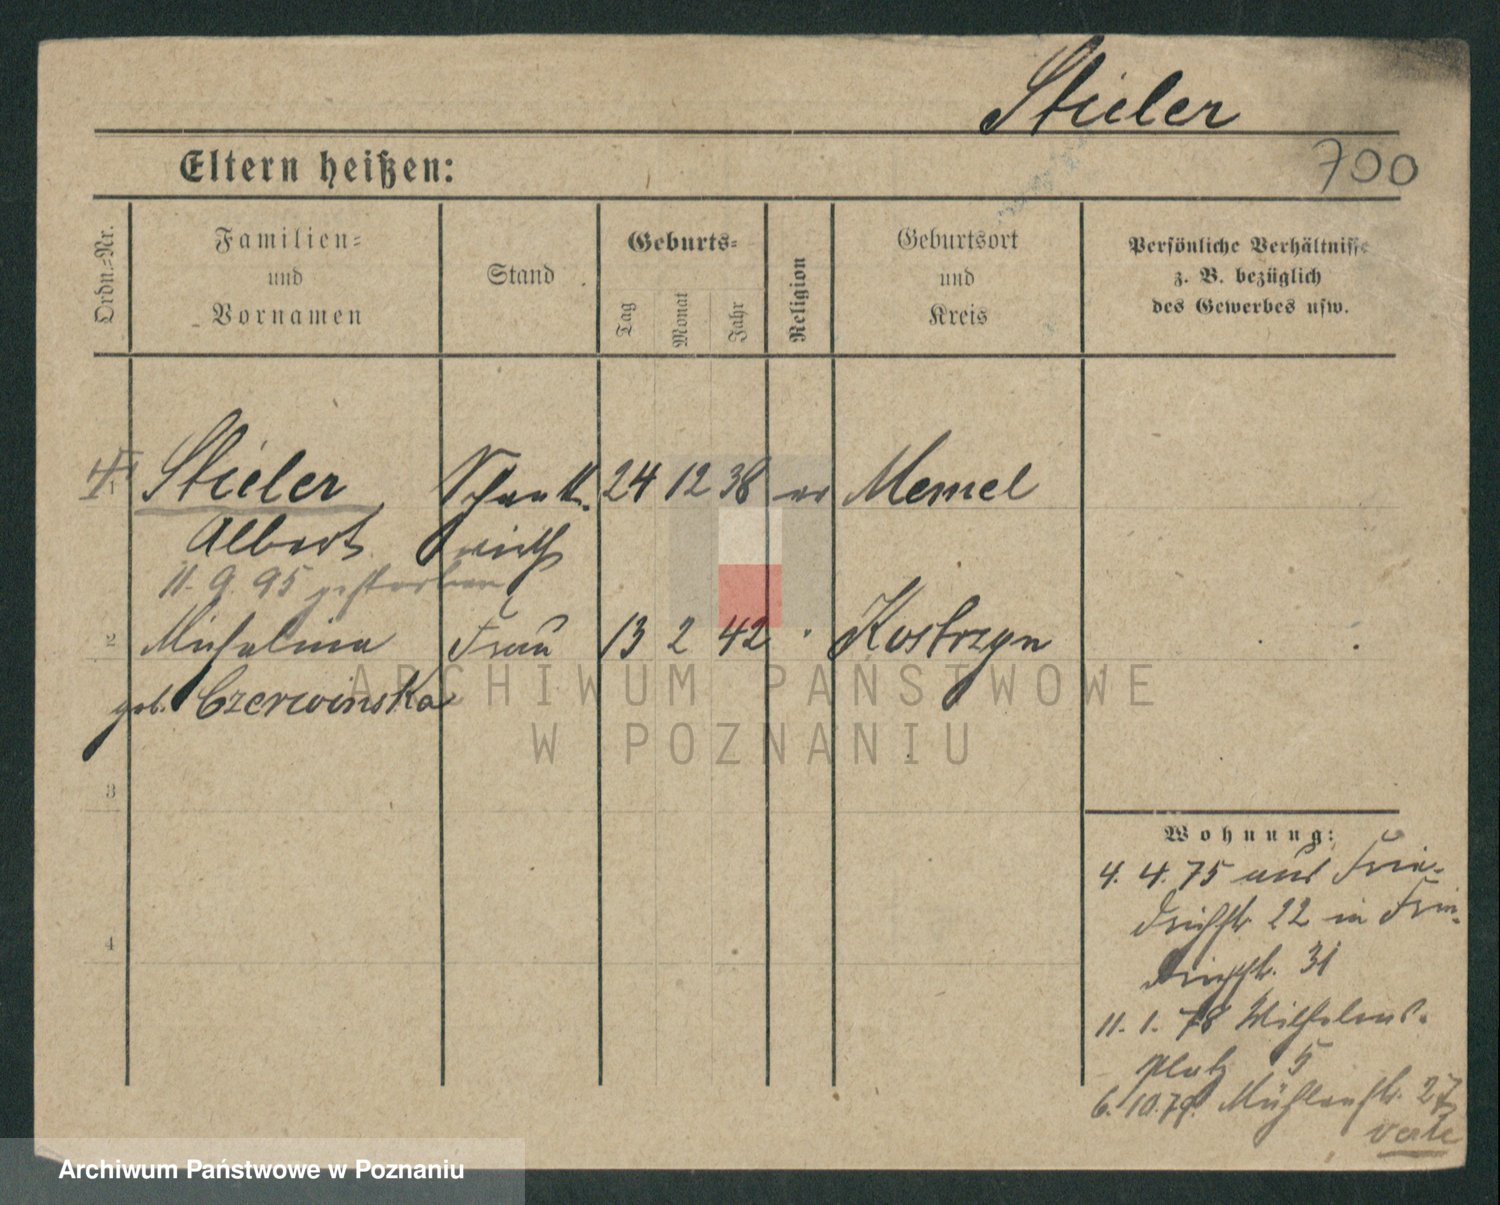 Stieler
700
Eltern heißen:
Ordn.-Nr.
Familien-
und
Vornamen
Stand
Geburts-
Tag
Monat
Jahr
Religion
Geburtsort
und
Kreis
Persönliche Verhältnisse
z. B. bezüglich
des Gewerbes usw.
1 Stieler Schank- 24 12 38 ev Memel
Albert wirth
11. 9. 95 gestorben
2 Michalina Frau 13 2 42 " Kostrzyn
geb. Czerwinska
3
4
Wohnung:
4. 4. 75 aus Frie-
drichstr. 22 in Frie-
drichstr. 31
11. 1. 78 Wilhelms-
platz 5
6. 10. 79. Mühlenstr. 27
verte
ARCHIWUM PAŃSTWOWE
W POZNANIU
Archiwum Państwowe w Poznaniu